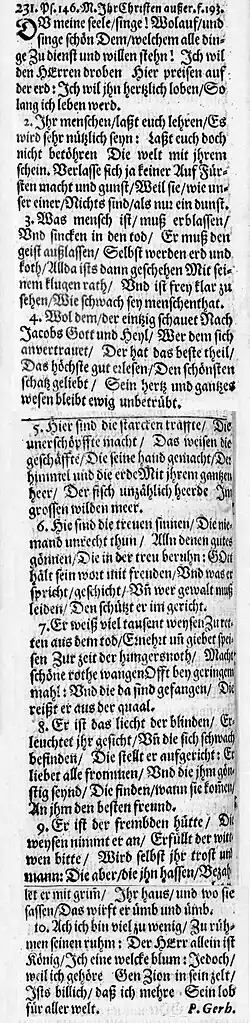 231. Ps. 146. M. Ihr Christen außer. f. 193.
DV meine seele/singe! Wolauf/und
singe schön Dem/welchem alle din-
ge Zu dienst und willen stehn! Ich wil
den HErren droben Hier preisen auf
der erd: Ich wil jhn hertzlich loben/So
lang ich leben werd.
2. Ihr menschen/laßt euch lehren/Es
wird sehr nützlich seyn: Laßt euch doch
nicht betöhren Die welt mit jhrem
schein. Verlasse sich ja keiner Auf Für-
sten macht und gunst/Weil sie/wie un-
ser einer/Nichts sind/als nur ein dunst.
3. Was mensch ist/muß erblassen/
Vnd sincken in den tod/ Er muß den
geist außlassen/ Selbst werden erd und
koth/Allda ists dann geschehen Mit sei-
nem klugen rath/ Vnd ist frey klar zu
sehen/Wie schwach sey menschenthat.
4. Wol dem/der eintzig schauet Nach
Jacobs Gott und Heyl/ Wer dem sich
anvertrauet/ Der hat das beste theil/
Das höchste gut erlesen/Den schönsten
schatz geliebt/ Sein hertz und gantzes
wesen bleibt ewig unbetrübt.
5. Hier sind die starcken kräffte/ Die
unerschöpffte macht/ Das weisen die
geschäffte/Die seine hand gemacht/Der
himmel und die erde Mit jhrem gantzen
heer/ Der fisch unzählich heerde Im
grossen wilden meer.
6. Hie sind die treuen sinnen/ Die nie-
mand unrecht thun/ Alln denen gutes
gönnen/Die in der treu beruhn: GOtt
hält sein wort mit freuden/Vnd was er
spricht/geschicht/Vñ wer gewalt muß
leiden/ Den schützt er im gericht.
7. Er weiß viel tausent weysen Zu ret-
ten aus dem tod/Ernehrt uñ giebet spei-
sen Zur zeit der hungersnoth/ Macht
schöne rothe wangen Offt bey geringem
mahl: Vnd die da sind gefangen/ Die
reißt er aus der quaal.
8. Er ist das liecht der blinden/ Er-
leuchtet jhr gesicht/ Vñ die sich schwach
befinden/ Die stellt er aufgericht: Er
liebet alle frommen/ Vnd die jhm gön-
stig seynd/ Die finden/wann sie komen/
An jhm den besten freund.
9. Er ist der frembden hütte/ Die
weysen nimmt er an/ Erfüllt der witt-
wen bitte/ Wird selbst jhr trost und
mann: Die aber/die jhn hassen/Bezah
let er mit grim̃/ Ihr haus/ und wo sie
sassen/Das wirft er ümb und ümb.
10. Ach ich bin viel zu wenig/ Zu rüh-
men seinen ruhm: Der HErr allein ist
König/Ich eine welcke blum: Jedoch/
weil ich gehöre Gen Zion in sein zelt/
Ists billich/daß ich mehre Sein lob
für aller welt. P. Gerh.